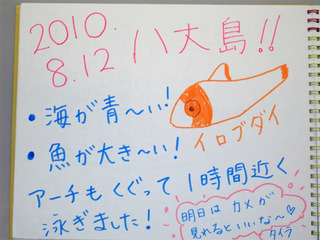 2010.
8.12 八丈島!!
・海が青〜い!
イロブダイ
・魚が大き〜い!
アーチもくぐって1時間近く
泳ぎました!
明日はカメが
見れるといいな〜♡
タイラ